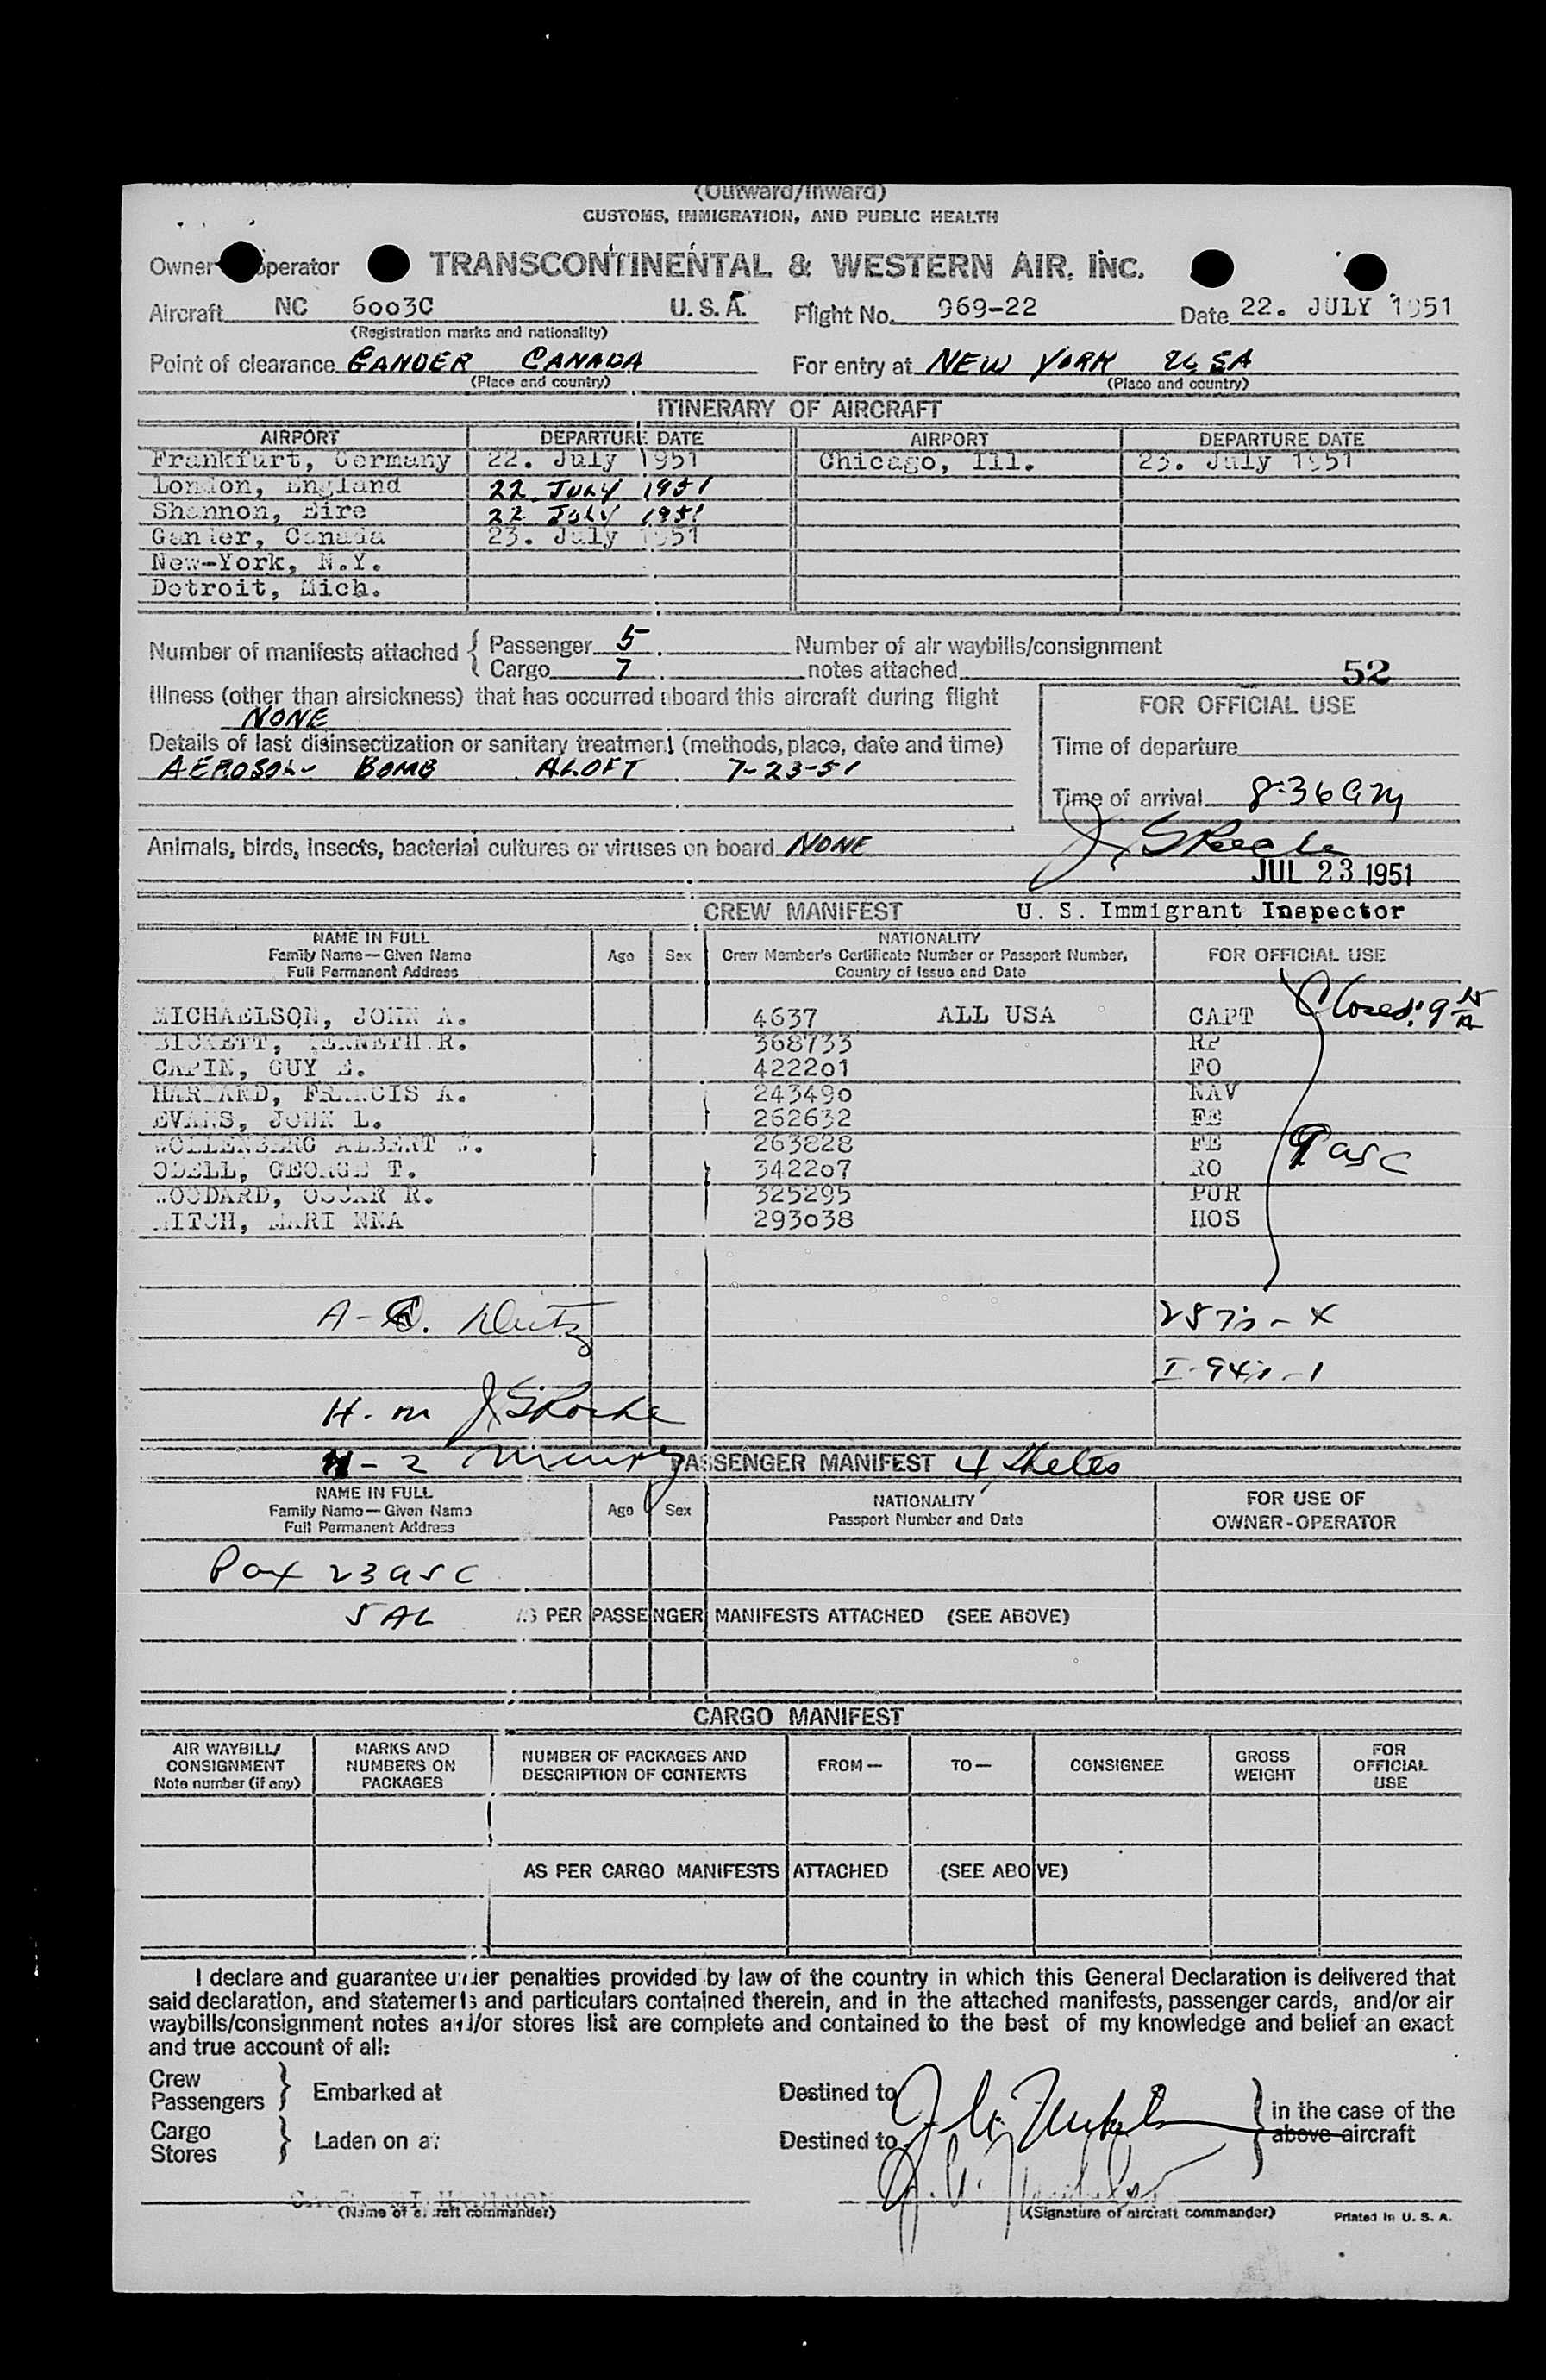 (Outward/Inward)
CUSTOMS, IMMIGRATION, AND PUBLIC HEALTH
Owner Operator TRANSCONTINENTAL & WESTERN AIR, INC.
Aircraft NC 6003C U.S.A. Flight No. 969-22 Date 22. JULY 1951
(Registration marks and nationality)
Point of clearance GANDER CANADA For entry at NEW YORK USA
(Place and country) (Place and country)
ITINERARY OF AIRCRAFT
AIRPORT DEPARTURE DATE AIRPORT DEPARTURE DATE
Frankfurt, Germany 22. July 1951 Chicago, Ill. 23. July 1951
London, England 22 JULY 1951
Shannon, Eire 22 JULY 1951
Gander, Canada 23. July 1951
New-York, N.Y.
Detroit, Mich.
Number of manifests attached { Passenger 5 Number of air waybills/consignment
Cargo 7 notes attached 52
Illness (other than airsickness) that has occurred aboard this aircraft during flight
NONE
FOR OFFICIAL USE
Details of last disinsectization or sanitary treatment (methods, place, date and time)
AEROSOL BOMB ALOFT 7-23-51
Time of departure
Time of arrival 8:36 am
Animals, birds, insects, bacterial cultures or viruses on board NONE
JUL 23 1951
CREW MANIFEST U. S. Immigrant Inspector
NAME IN FULL
Family Name—Given Name
Full Permanent Address
Age Sex
NATIONALITY
Crew Member's Certificate Number or Passport Number,
Country of Issue and Date
FOR OFFICIAL USE
MICHAELSON, JOHN A. 4637 ALL USA CAPT Closed: 9
BICKETT, KENNETH R. 368733 RP
CAPIN, GUY E. 422201 FO
HARLAND, FRANCIS A. 243490 NAV
EVANS, JOHN L. 262632 FE
WOLLENBERG ALBERT W. 263828 FE 9 asc
ODELL, GEORGE T. 342207 RO
WOODARD, OSCAR R. 325295 PUR
MARI NNA 293038 HOS
A-
I-94
H-m
H-2
PASSENGER MANIFEST 4
NAME IN FULL
Family Name—Given Name
Full Permanent Address
Age Sex
NATIONALITY
Passport Number and Date
FOR USE OF
OWNER-OPERATOR
Pax 23 asc
5 AL AS PER PASSENGER MANIFESTS ATTACHED (SEE ABOVE)
CARGO MANIFEST
AIR WAYBILL/
CONSIGNMENT
Note number (if any)
MARKS AND
NUMBERS ON
PACKAGES
NUMBER OF PACKAGES AND
DESCRIPTION OF CONTENTS
FROM— TO— CONSIGNEE
GROSS
WEIGHT
FOR
OFFICIAL
USE
AS PER CARGO MANIFESTS ATTACHED (SEE ABOVE)
I declare and guarantee under penalties provided by law of the country in which this General Declaration is delivered that
said declaration, and statements and particulars contained therein, and in the attached manifests, passenger cards, and/or air
waybills/consignment notes and/or stores list are complete and contained to the best of my knowledge and belief an exact
and true account of all:
Crew
Passengers } Embarked at Destined to
Cargo
Stores } Laden on at Destined to
} in the case of the
above aircraft
(Name of aircraft commander) (Signature of aircraft commander) Printed in U. S. A.